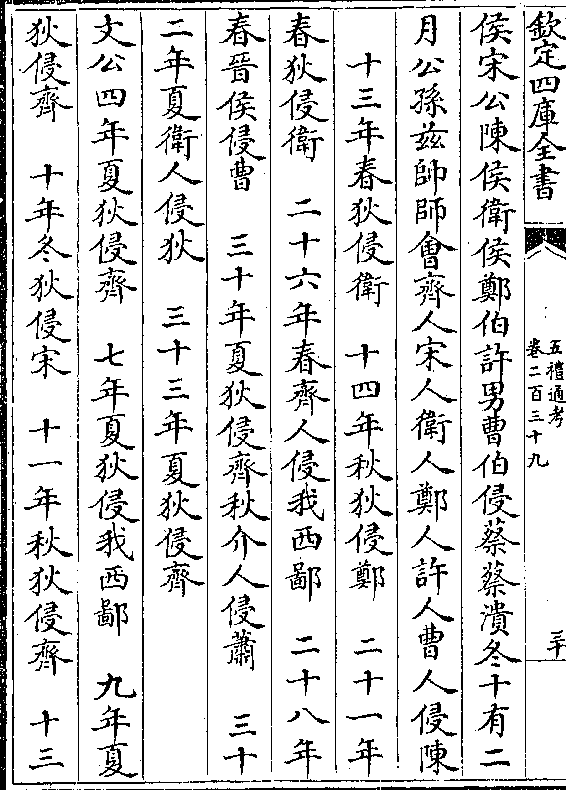 欽定四庫全書
五禮通考
卷二百三十九
三十
侯宋公陳侯衛侯鄭伯許男曹伯侵蔡蔡潰冬十有二
月公孫茲帥師會齊人宋人衛人鄭人許人曹人侵陳
十三年春狄侵衛 十四年秋狄侵鄭 二十一年
春狄侵衛 二十六年春齊人侵我西鄙 二十八年
春晉侯侵曹 三十年夏狄侵齊秋介人侵蕭 三十
二年夏衛人侵狄 三十三年夏狄侵齊
文公四年夏狄侵齊 七年夏狄侵我西鄙 九年夏
狄侵齊 十年冬狄侵宋 十一年秋狄侵齊 十三